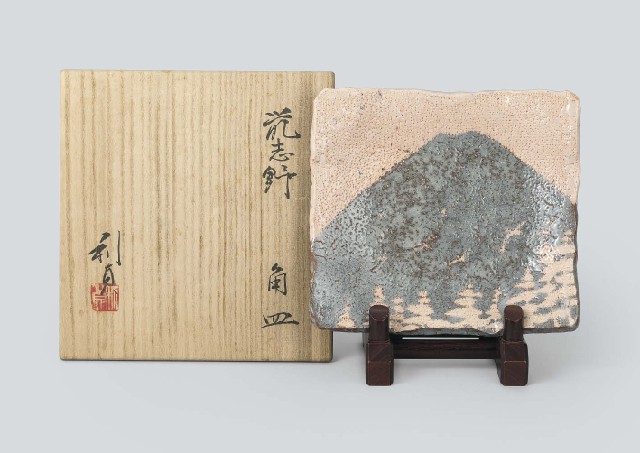 鼠志野 角皿
利貞